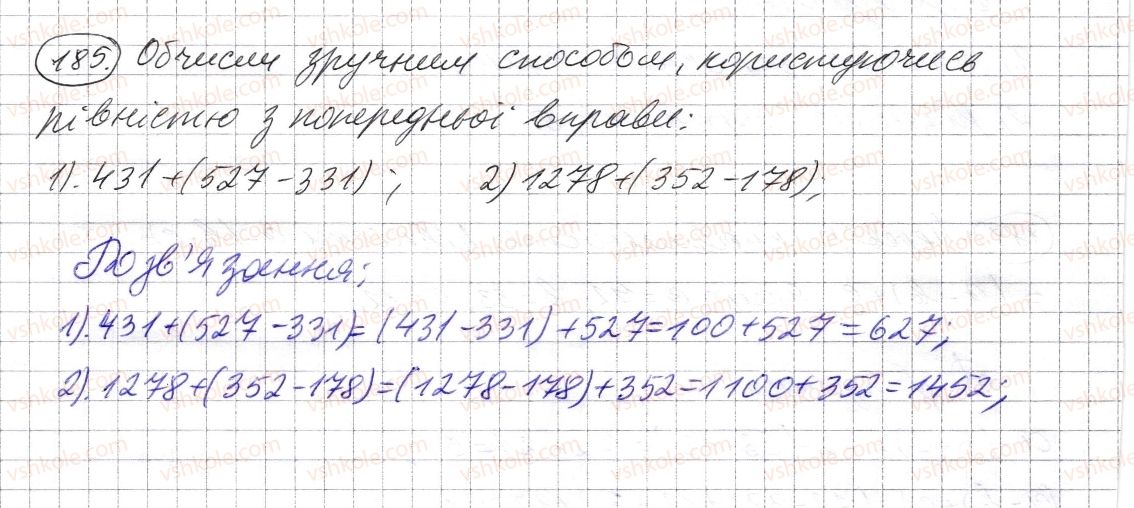 185. Обчисли зручним способом, користуючись
рівністю з попередньої вправи:
1). 431+(527-331); 2) 1278+(352-178);
Розв'язання:
1). 431+(527-331)=(431-331)+527=100+527=627;
2). 1278+(352-178)=(1278-178)+352=1100+352=1452;